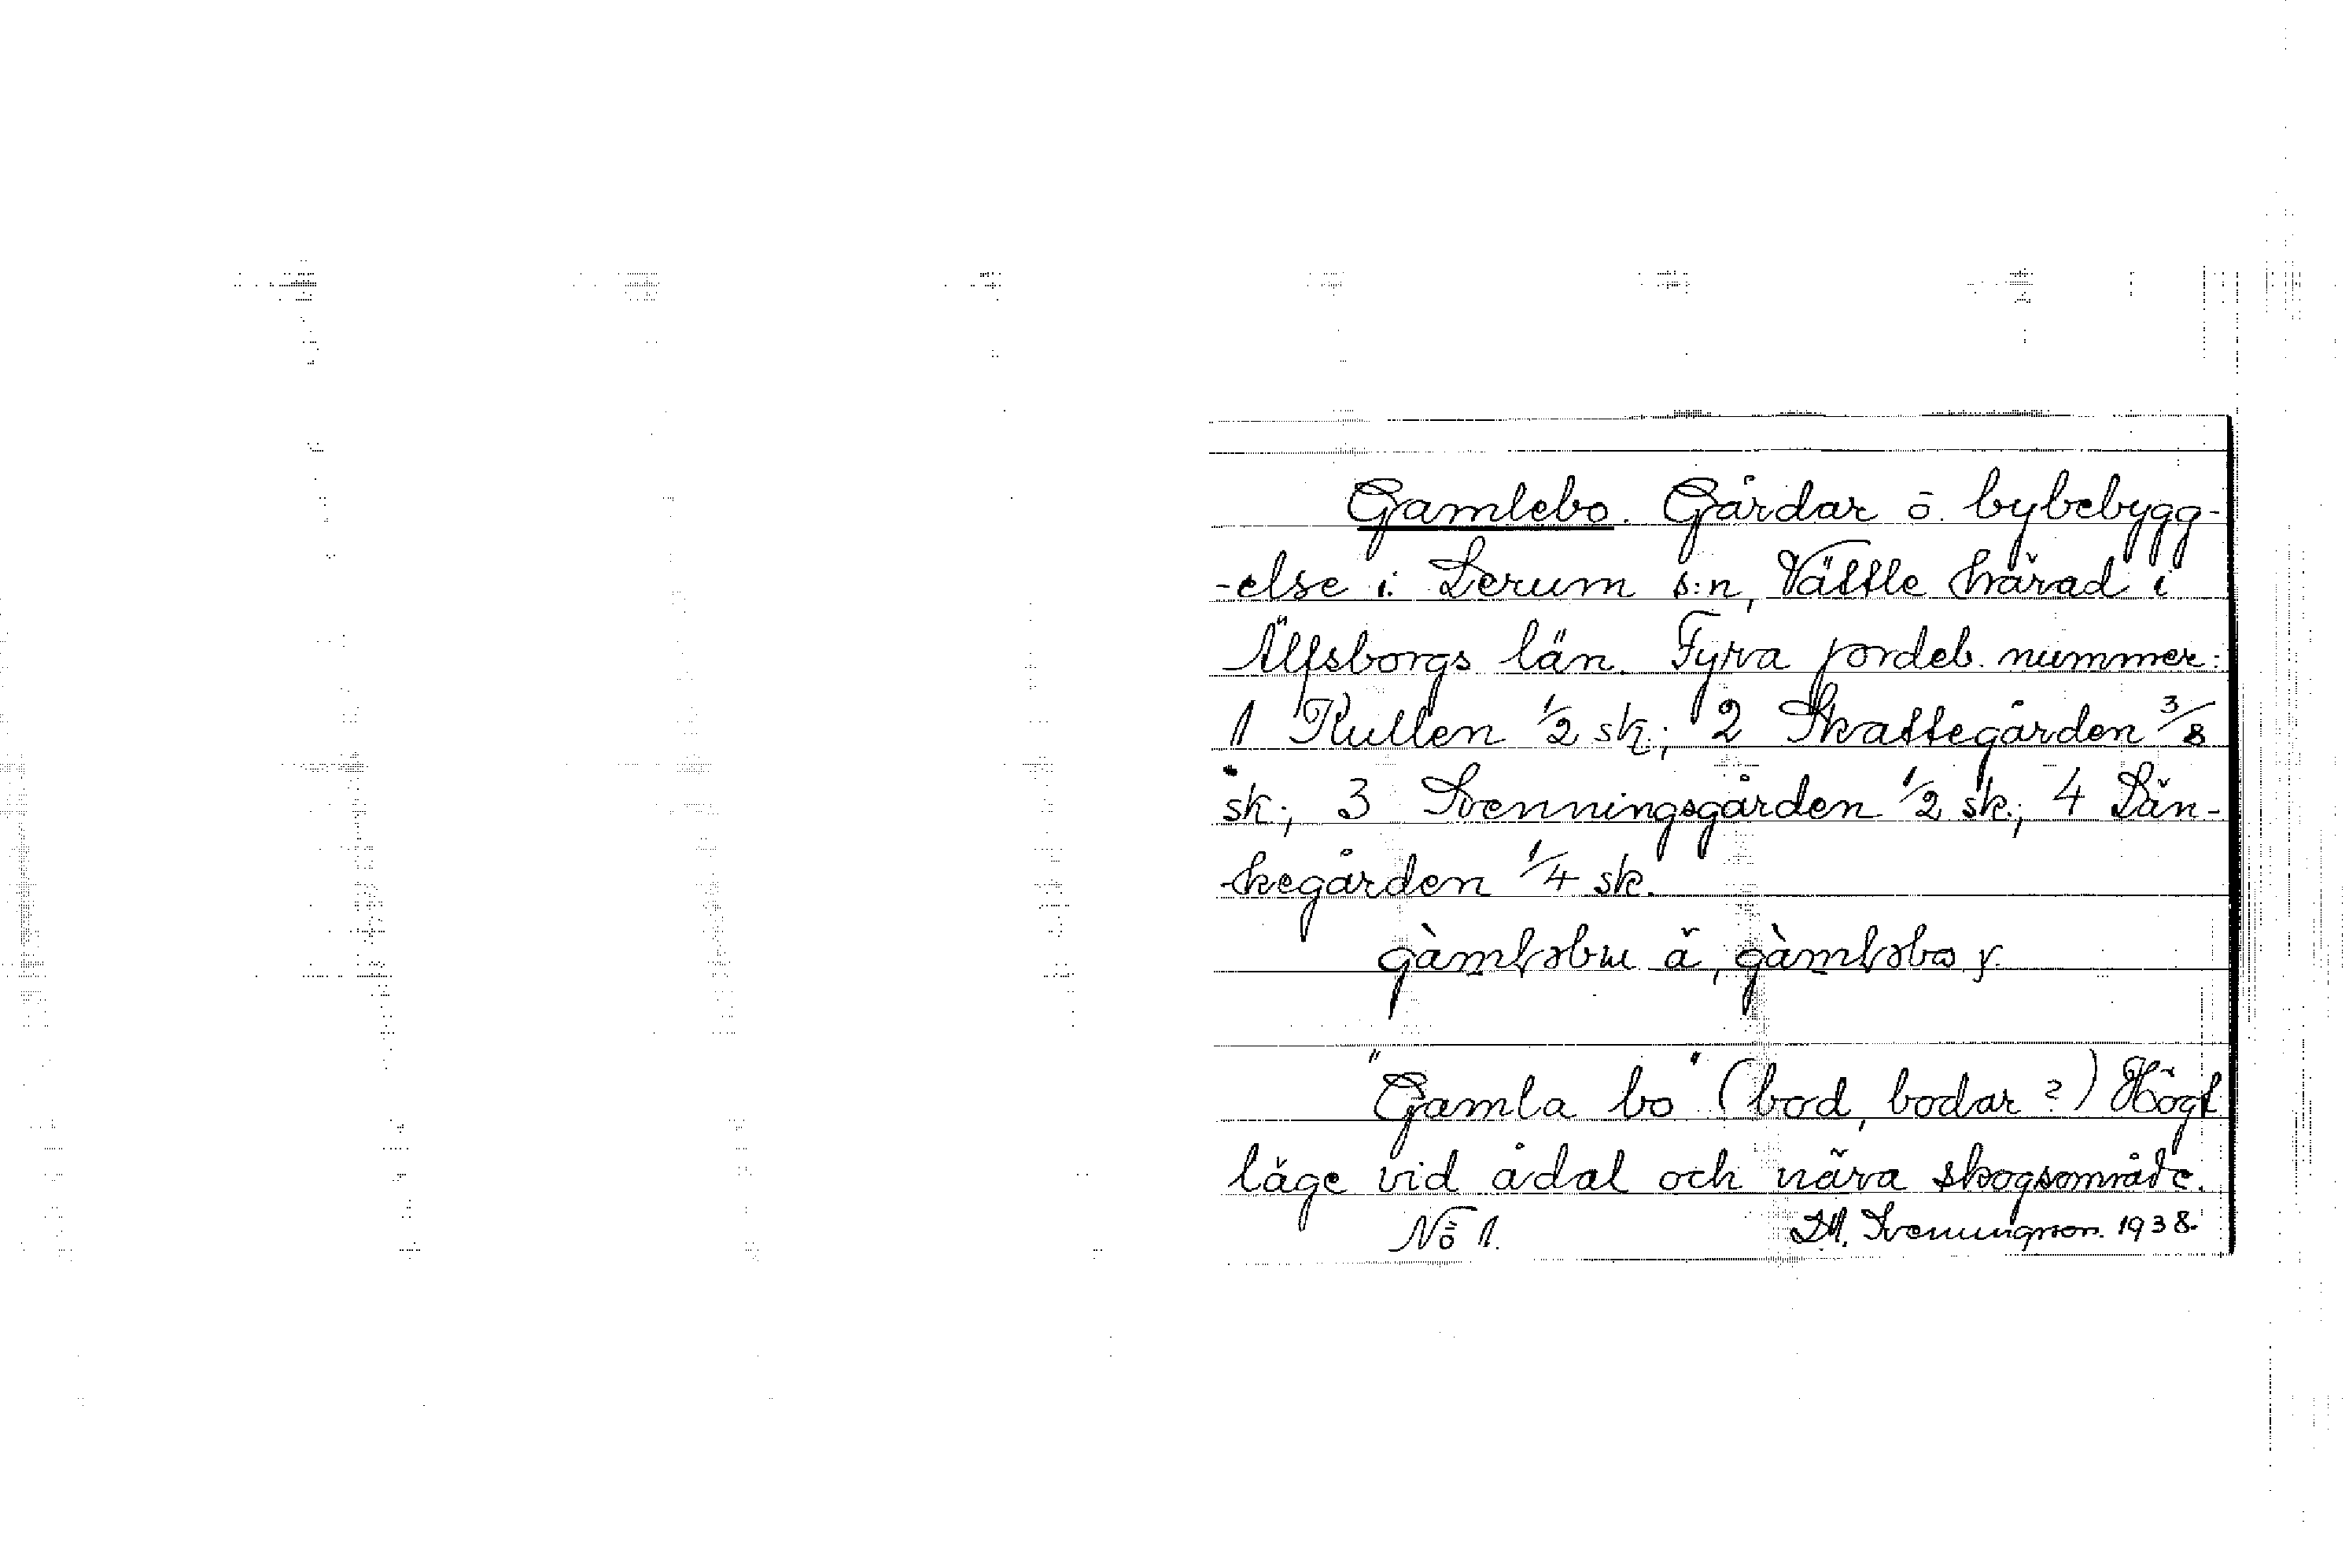 Gamlebo. Gårdar o. bybebygg-
-else i Lerum s:n, Vättle härad i
Älfsborgs län. Fyra jordeb. nummer:
1 Kullen 1/2 sk.; 2 Skattegården 3/8
sk.; 3 Svenningsgården 1/2 sk.; 4 Län-
-kegården 1/4 sk.
ä, y.
"Gamla bo" (bod, bodar?) Högt
läge vid ådal och nära skogsområde.
No 1. Svenungson. 1938.